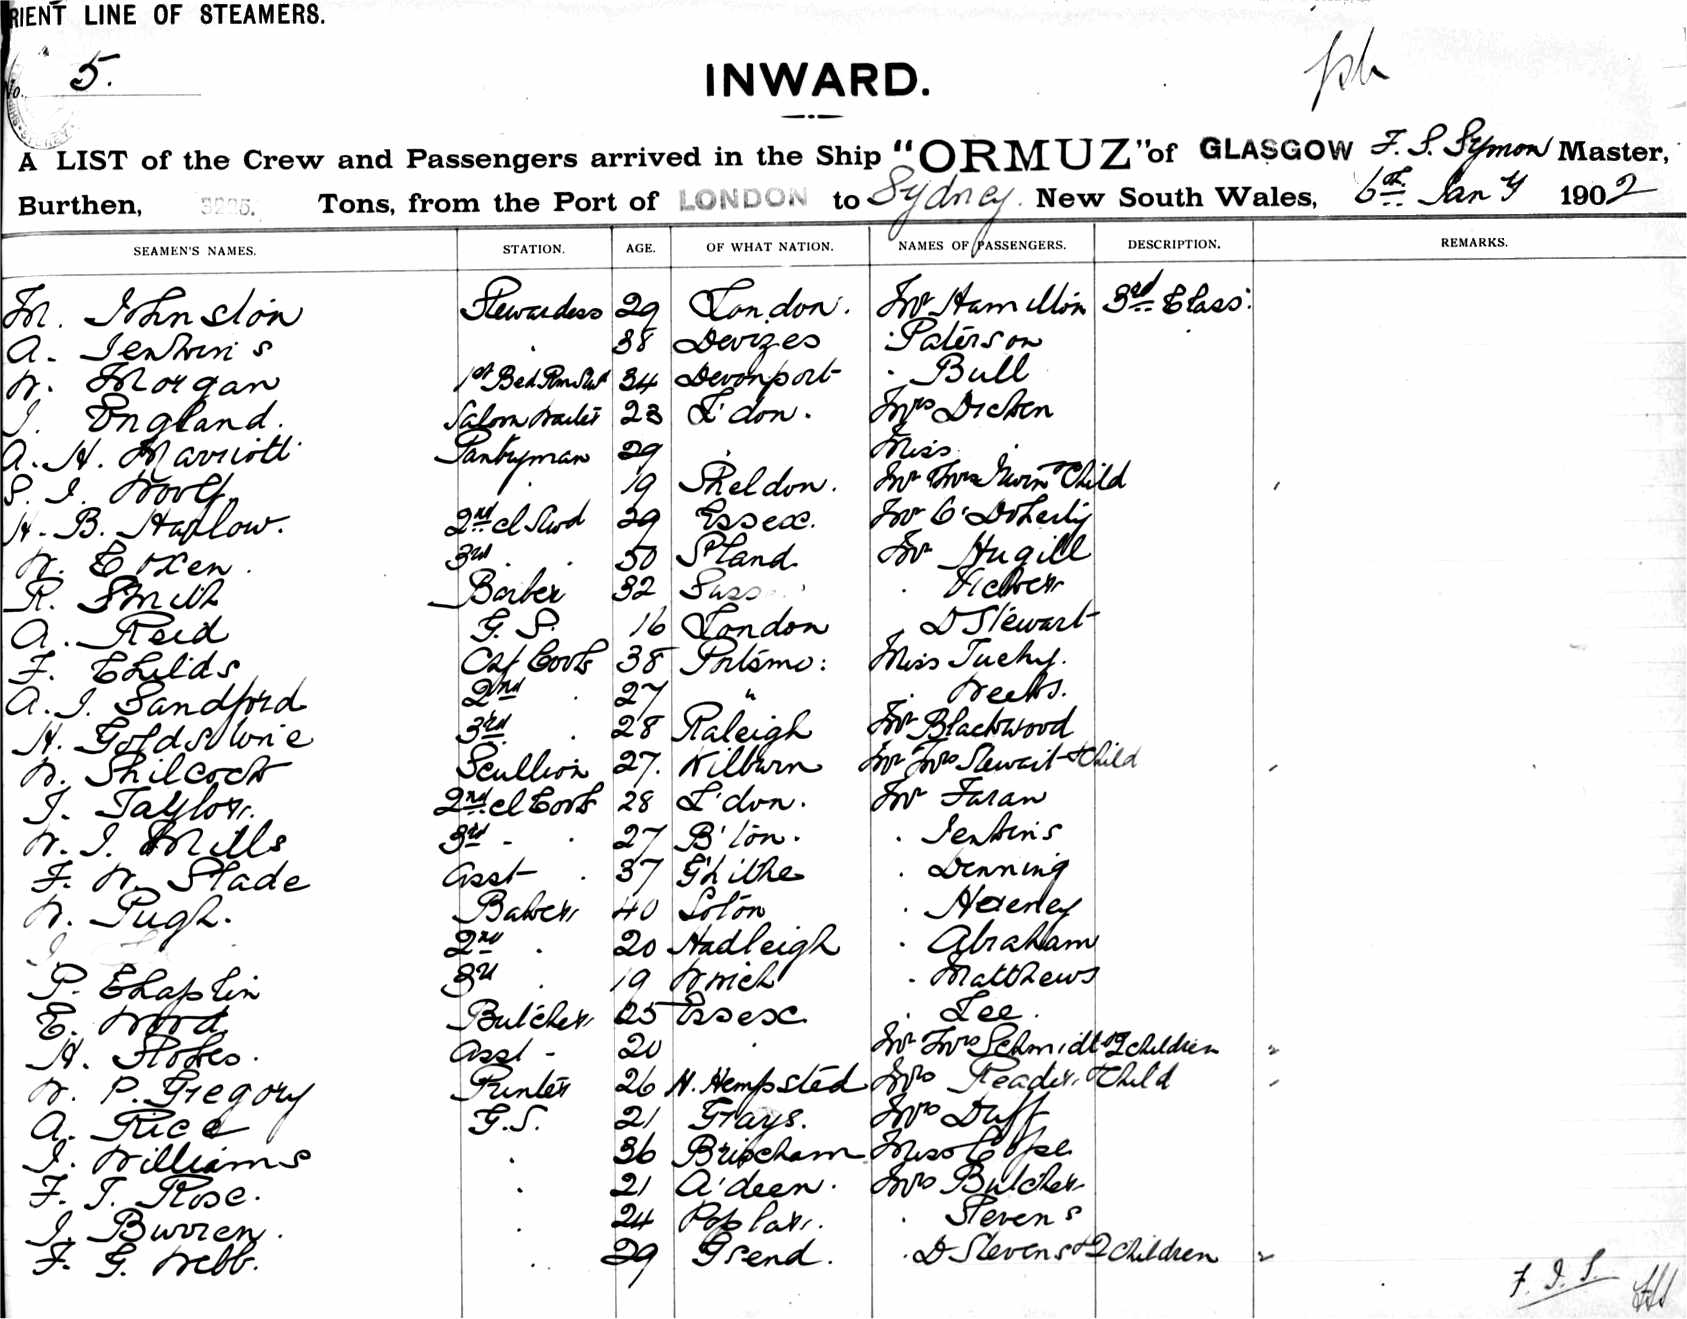 RIENT LINE OF STEAMERS.
No. 5.
INWARD.
A LIST of the Crew and Passengers arrived in the Ship "ORMUZ" of GLASGOW F. S. Symon Master,
Burthen, 3225. Tons, from the Port of LONDON to Sydney. New South Wales, 6th Jany 1902
SEAMEN'S NAMES. STATION. AGE. OF WHAT NATION. NAMES OF PASSENGERS. DESCRIPTION. REMARKS.
M. Johnston Stewardess 29 London. Mr Hamilton 3rd Class.
A. Jenkins . 38 Devizes . Paterson
W. Morgan 1st Bed Rm Std 34 Devonport . Bull
J. England. Saloon Waiter 23 L'don. Mrs Dicken
A. H. Marriott Pantryman 29 . Miss .
S. J. Woolf . 19 Sheldon. Mr Mrs Child
H. B. Harlow. 2nd cl Stwd 29 Essex. Mr C. Doherty
W. Coxen. 3rd . . 50 S'land Mr Hugill
R. Smith Barber 32 .
A. Reid G. S. 16 London . D Stewart
F. Childs Cook 38 Portsmo: Miss Tuchy.
A. J. Sandford 2nd . 27 " . Weeks.
H. Goldstone 3rd . 28 Raleigh Mr Blackwood
W. Shilcock Scullion 27. Kilburn Mr Mrs Stewart & Child
J. Taylor. 2nd cl Cook 28 L'don. Mr Faran
W. J. Mills 3rd - . 27 B'ton. . Jenkins
F. W. Slade Asst . 37 . Denning
W. Pugh. Baker 40 Soton .
2nd . 20 Hadleigh . Abraham
P. Chaplin 3rd . 19 Wwich . Matthews
E. Wood Butcher 25 Essex . Lee.
H. Stokes. Asst - 20 . Mr Mrs Schmidt & 2 children
W. P. Gregory Printer 26 H. Hempsted Mrs Reader & Child
A. Rice G.S. 21 Grays. Mrs Duff
J. Williams . 36 Brixham Miss Copse
F. T. Rose. . 21 A'deen. Mrs Butcher
J. Burren. . 24 Poplar. . Stevens
F. G. Webb. . 29 Gsend. . D Stevens & 2 children
F. J. S.